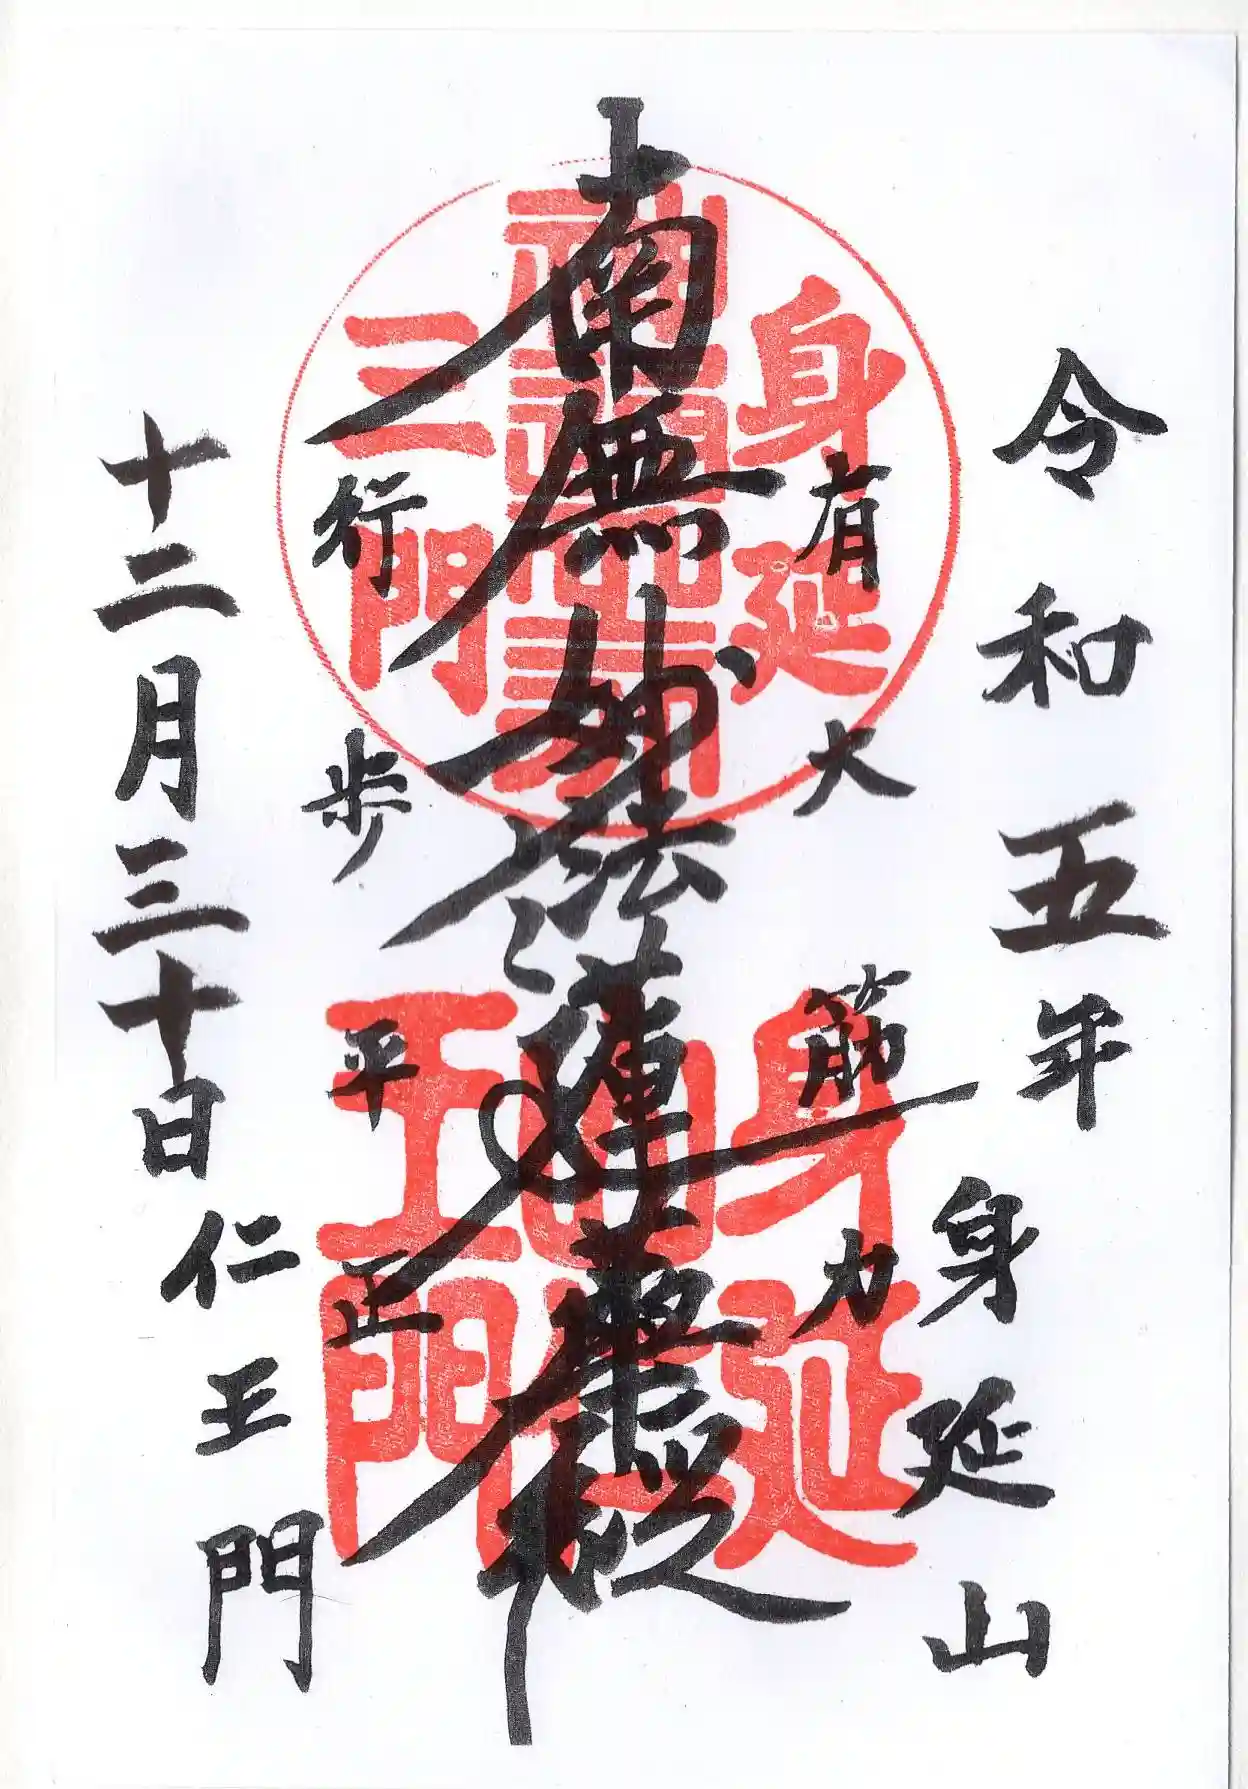 令和五年
身延山
有大筋力
南無妙法蓮華経
行歩平正
十二月三十日
仁王門
身延
三門
身延山
王門